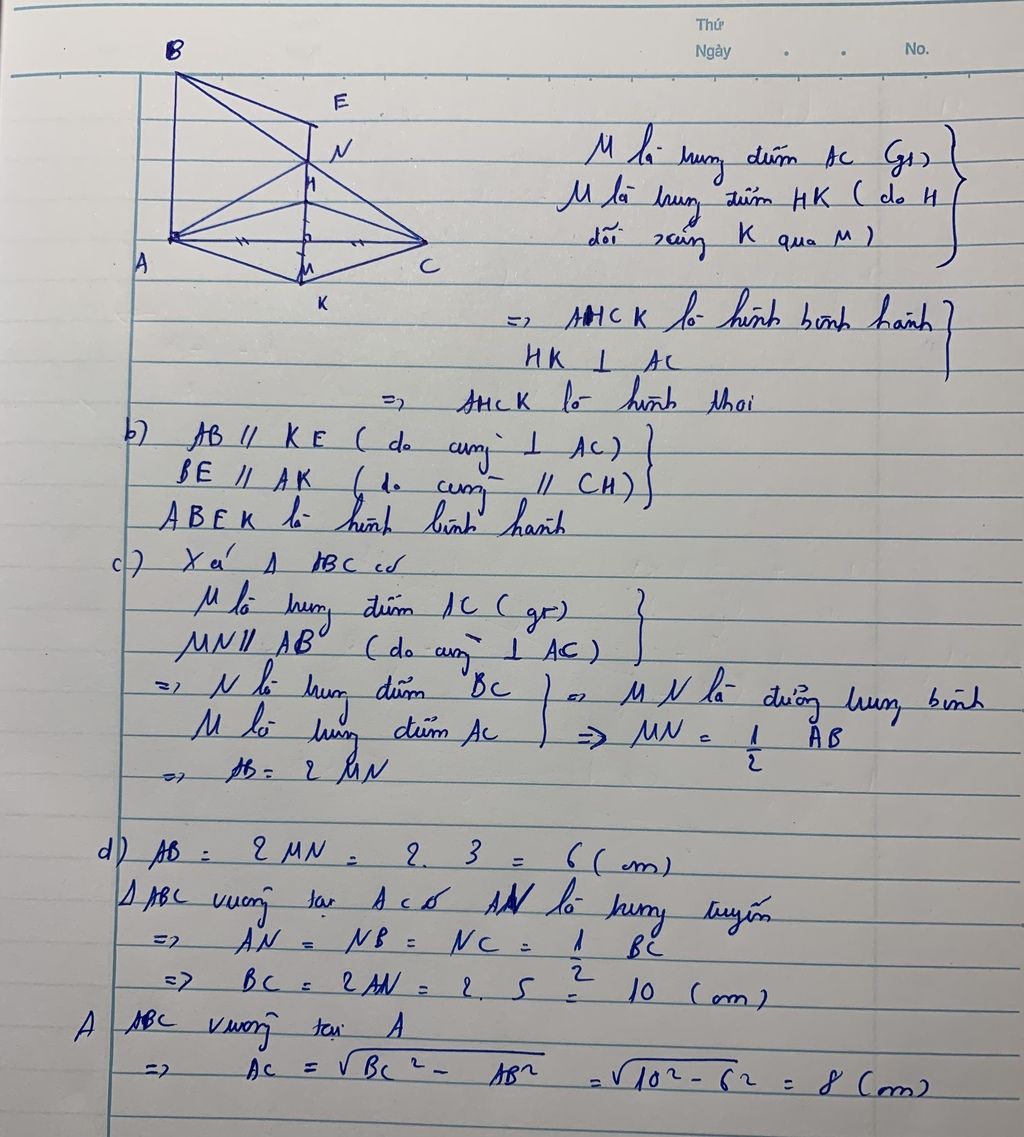 Thứ
Ngày . . No.
B
E
N
H
A
M
C
K
M là trung điểm AC (gt)
M là trung điểm HK ( do H
đối xứng K qua M )
=> AHCK là hình bình hành
HK ⊥ AC
=> AHCK là hình thoi
b) AB // KE ( do cùng ⊥ AC )
BE // AK ( do cùng // CH )
ABEK là hình bình hành
c) Xét Δ ABC có
M là trung điểm AC ( gt )
MN // AB ( do cùng ⊥ AC )
=> N là trung điểm BC => MN là đường trung bình
M là trung điểm AC => MN = 1/2 AB
=> AB = 2 MN
d) AB = 2 MN = 2. 3 = 6 ( cm )
Δ ABC vuông tại A có AN là trung tuyến
=> AN = NB = NC = 1/2 BC
=> BC = 2 AN = 2. 5 = 10 ( cm )
Δ ABC vuông tại A
=> AC = √BC² - AB² = √10² - 6² = 8 ( cm )